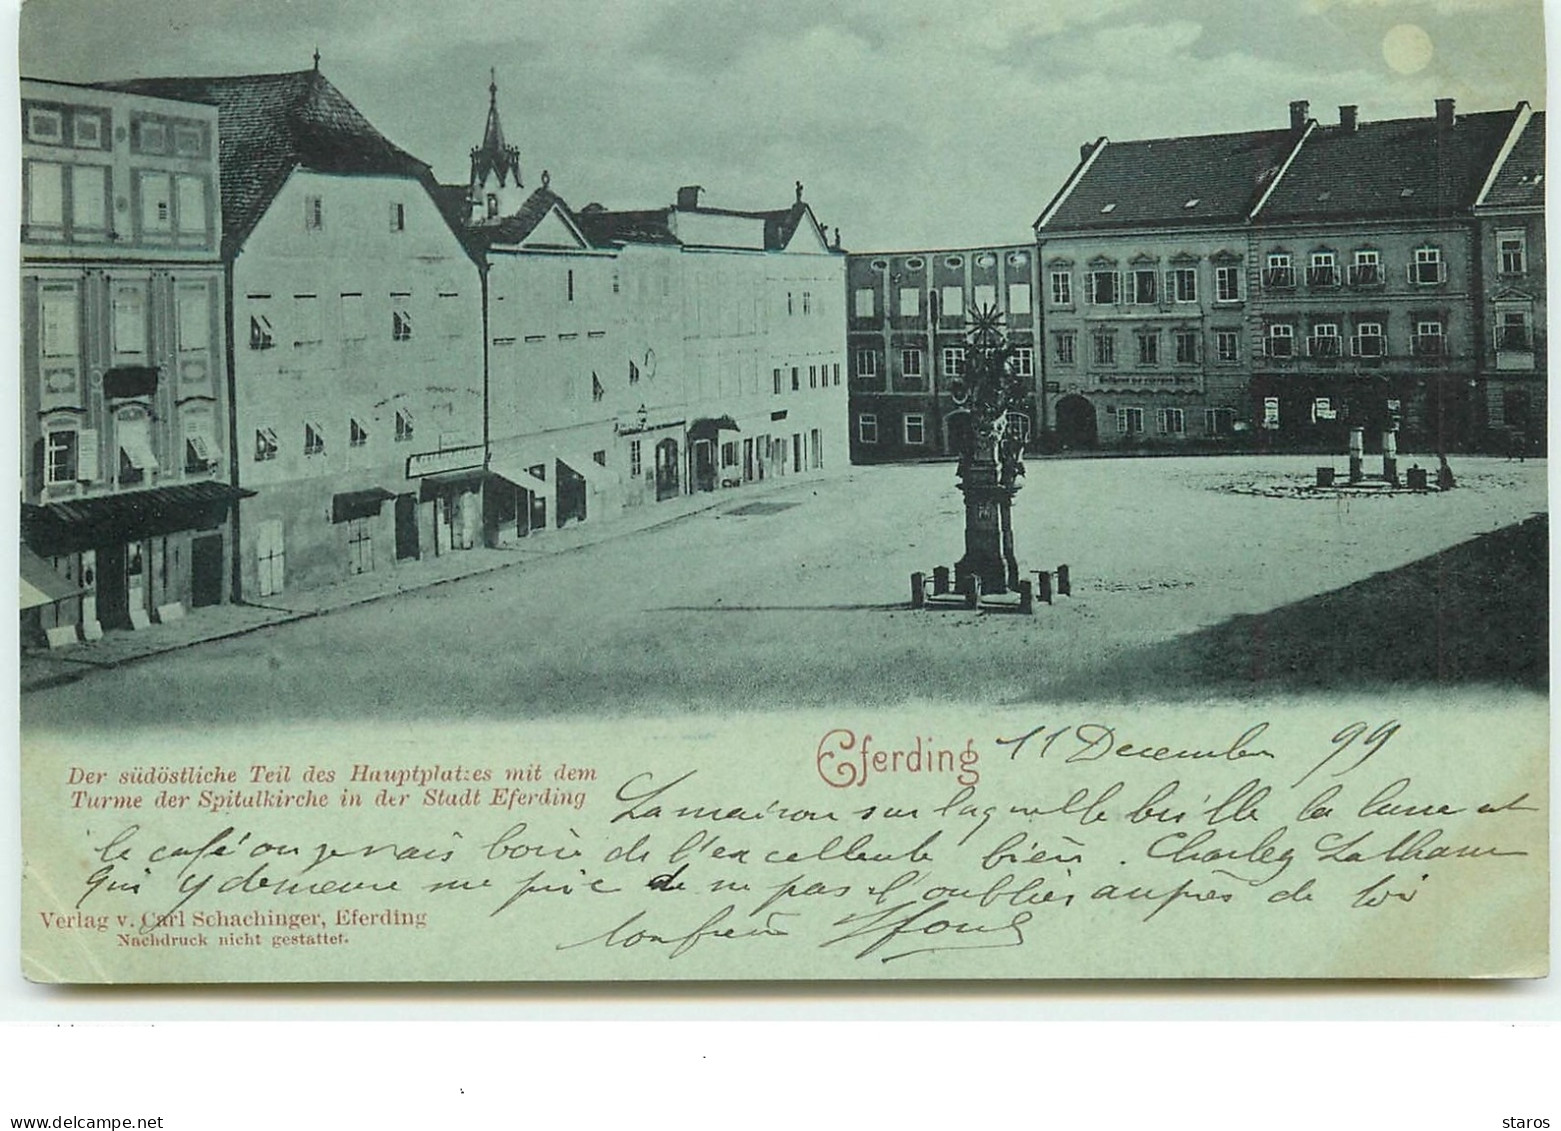 Der südöstliche Teil des Hauptplatzes mit dem
Turme der Spitalkirche in der Stadt Eferding
Eferding 11 Decembre 99
La maison sur laquelle brille la lune est
le café où je vais boire de l'excellente bière. Charley
qui y demeure me prie de ne pas l'oublier auprès de toi
Ton frère
Verlag v. Carl Schachinger, Eferding
Nachdruck nicht gestattet.
www.delcampe.net
staros